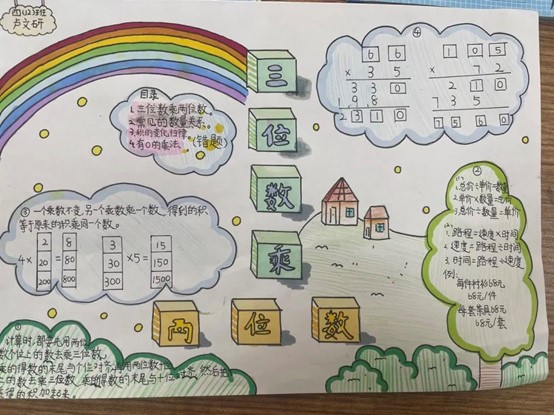 四(2)班
卢文研
三
位
数
乘
两
位
数
目录
1.三位数乘两位数。
2.常见的数量关系。
3.积的变化规律
4.有0的乘法。(错题)
④
6 6
× 3 5
3 3 0
1 9 8
2 3 1 0
1 0 5
× 7 2
2 1 0
7 3 5
7 5 6 0
③ 一个乘数不变,另一个乘数乘一个数,得到的积
等于原来的积乘同一个数。
4× 2 20 200 = 8 80 800
3 30 300 ×5= 15 150 1500
②
(1)
1.总价÷单价=数量
2.单价×数量=总价
3.总价÷数量=单价
(2)
1.路程=速度×时间
2.速度=路程÷时间
3.时间=路程÷速度
例:
每件衬衫68元
68元/件
每套茶具68元
68元/套
计算时,都要先用两位
数个位上的数去乘三位数,
得数的末尾与个位对齐,再用两位数十
位上的数去乘三位数,乘得得数的末尾与十位对齐,然后把
乘得的积加起来。